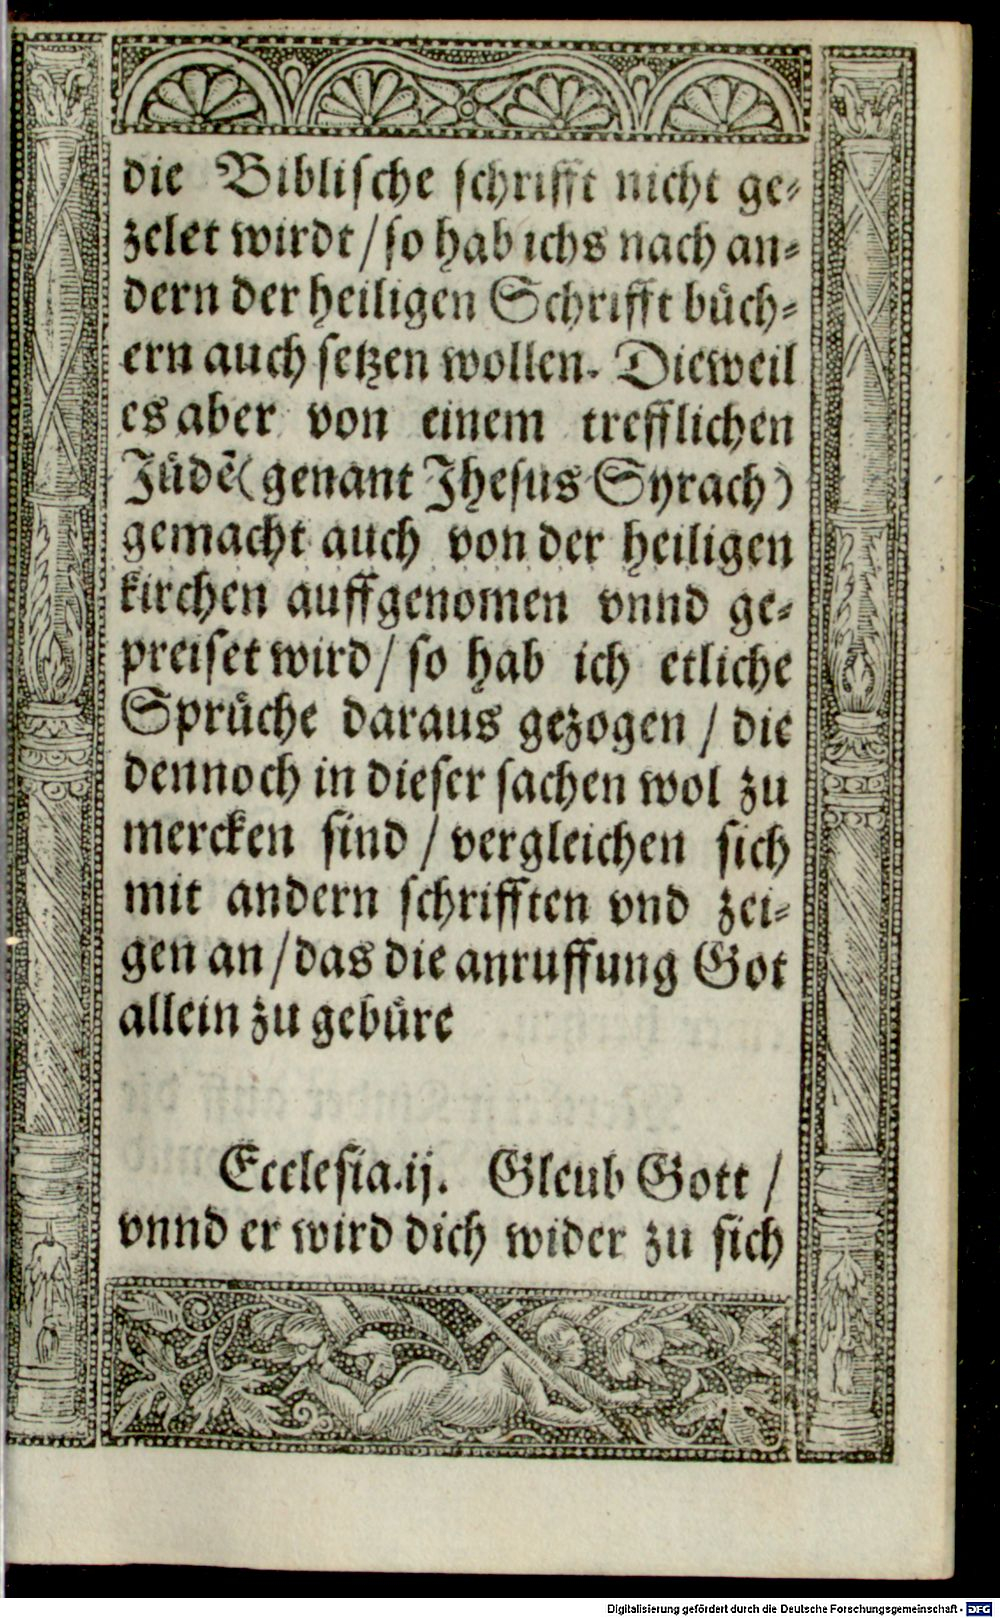 die Biblische schrifft nicht ge⸗
zelet wirdt / so hab ichs nach an⸗
dern der heiligen Schrifft buͤch⸗
ern auch setzen wollen. Dieweil
es aber von einem trefflichen
Juͤdē (genant Jhesus Syrach)
gemacht auch von der heiligen
kirchen auffgenomen vnnd ge⸗
preiset wird / so hab ich etliche
Spruͤche daraus gezogen / die
dennoch in dieser sachen wol zu
mercken sind / vergleichen sich
mit andern schrifften vnd zei⸗
gen an / das die anruffung Got
allein zu gebuͤre
Ecclesia.ij. Gleub Gott /
vnnd er wird dich wider zu sich
Digitalisierung gefördert durch die Deutsche Forschungsgemeinschaft - DFG